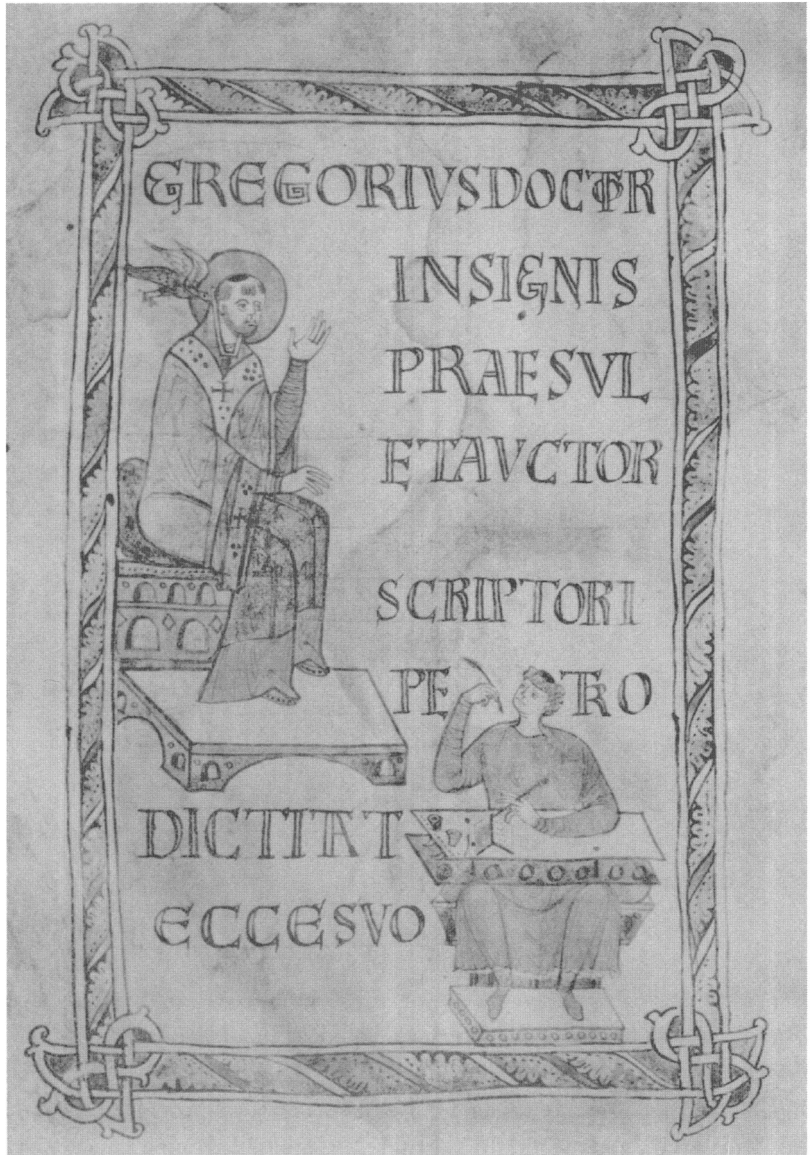 GREGORIVSDOCTOR
INSIGNIS
PRAESVL
ETAVCTOR
SCRIPTORI
PETRO
DICTITAT
ECCESVO